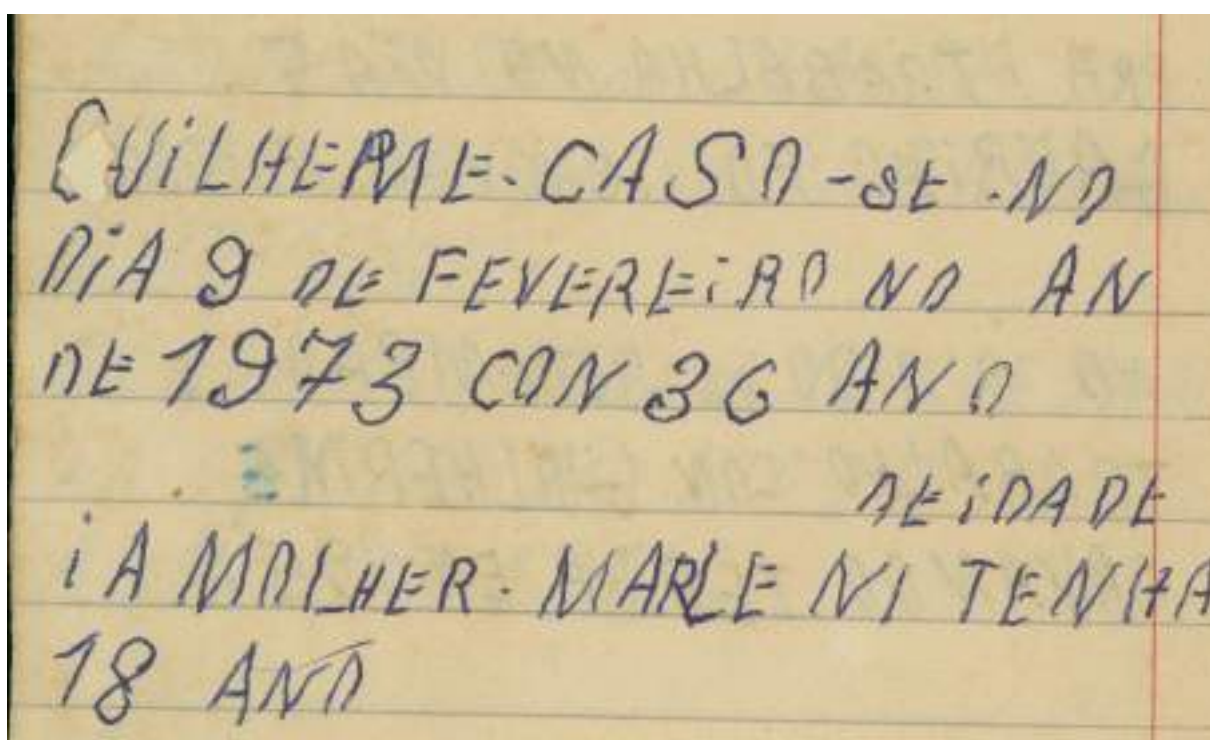 GUILHERME. CASO-SE .NO
DIA 9 DE FEVEREIRO NO AN
DE 1973 CON 36 ANO
DE iDADE
i A MOLHER. MARLENI TENHA
18 ANO